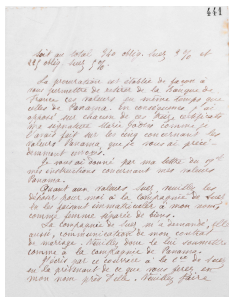 661
soit au total 360 oblig. Suez 5 % et
225 oblig. Suez 3 %.
La procuration est établie de façon à
vous permettre de retirer de la Banque de
France ces valeurs en même temps que
celles de Panama. En conséquence j'ai
apposé sur chacun de ces certificats
ma signature Marie comme je
l'avais fait sur les cinq concernant les
valeurs Panama, que je vous ai précé-
demment envoyés.
Je vous ai donné par ma lettre du
mes instructions concernant mes valeurs
Panama.
Quant aux valeurs Suez, veuillez les
déposer pour moi à la Compagnie de Suez
en les faisant immatriculer à mon nom,
comme femme séparée de biens.
La Compagnie de Suez m'a demandé, elle
aussi, communication de mon contrat
de mariage. Veuillez donc le lui soumettre
comme à la Compagnie de Panama.
J'écris par ce courrier à la Cie de Suez
en la prévenant de ce que vous ferez en
mon nom près d'elle. Veuillez faire